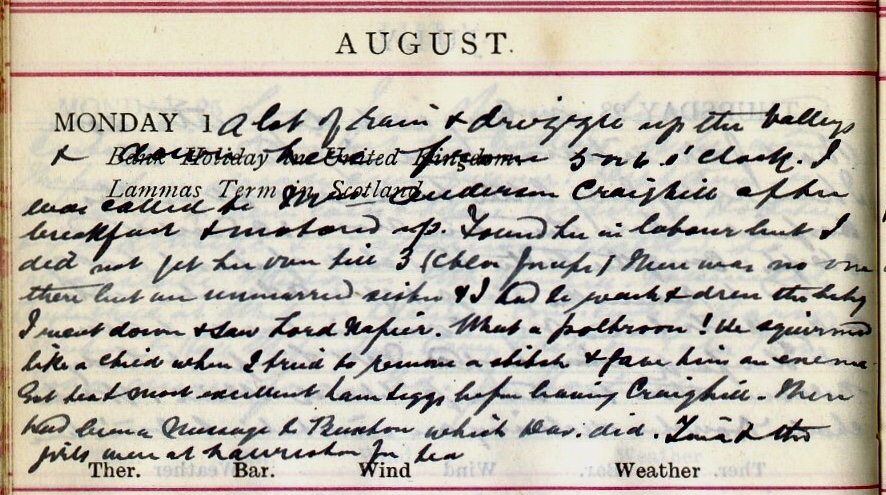 AUGUST.
MONDAY 1 A lot of rain & drizzle up the valleys
Bank Holiday in United Kingdom.
& down here from 5 or 6 o'clock. I
Lammas Term in Scotland.
was called to Mrs Anderson Craighill after
breakfast & motored up. Found her in labour but I
did not get her over till 3 (Chloroform) There was no one
there but an unmarried sister & I had to wash & dress the baby
I went down & saw Lord Napier. What a poltroon! He squirmed
like a child when I tried to remove a stitch & gave him an enema.
Got tea & most excellent ham & eggs before leaving Craighill. There
had been a message to Buxton which Dav. did. & the
girls were at for tea
Ther. Bar. Wind Weather